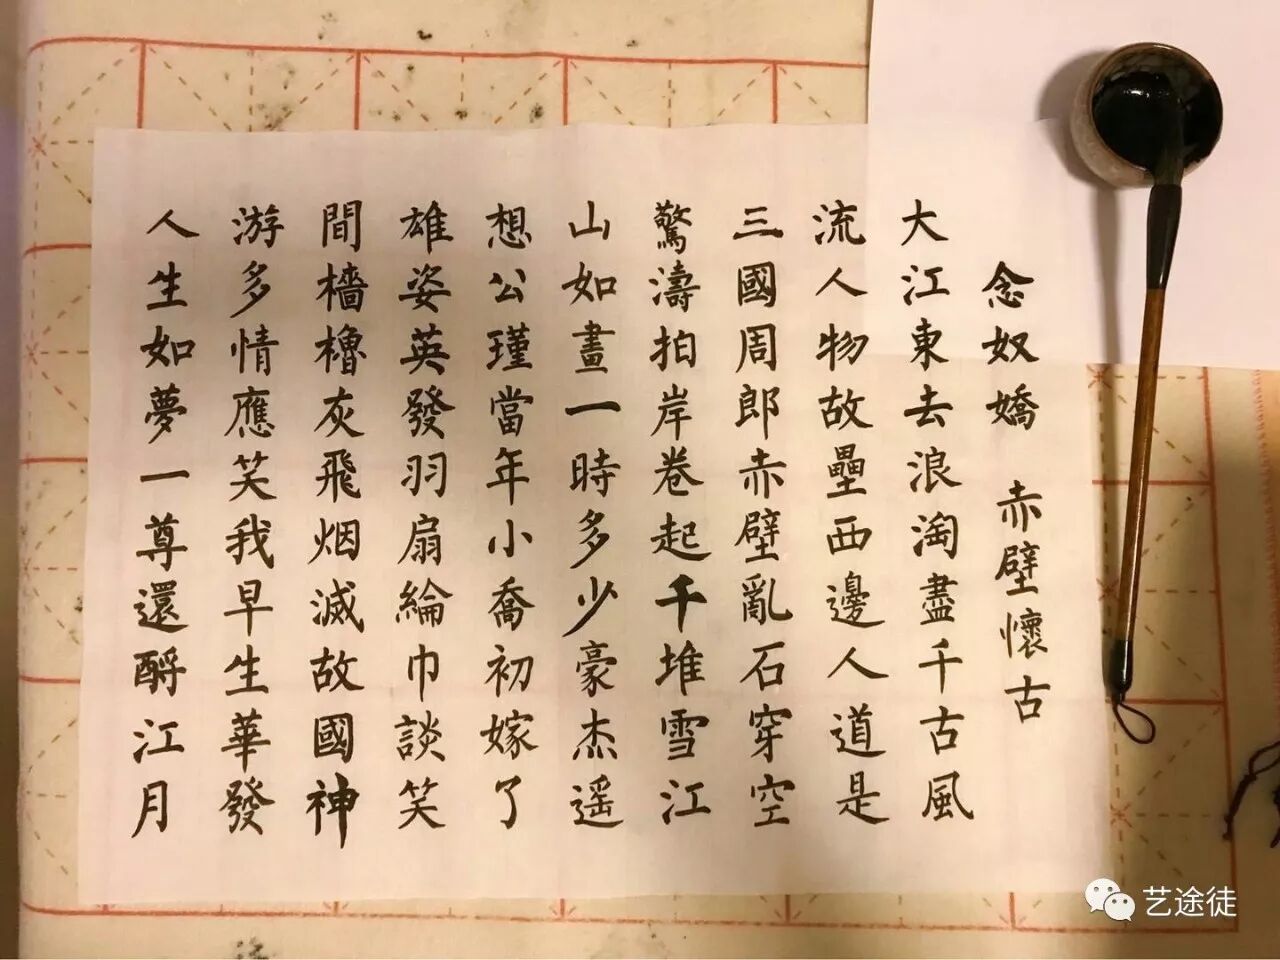 念奴嬌 赤壁懷古
大江東去浪淘盡千古風
流人物故壘西邊人道是
三國周郎赤壁亂石穿空
驚濤拍岸卷起千堆雪江
山如畫一時多少豪杰遥
想公瑾當年小喬初嫁了
雄姿英發羽扇綸巾談笑
間檣櫓灰飛烟滅故國神
游多情應笑我早生華發
人生如夢一尊還酹江月
艺途徒